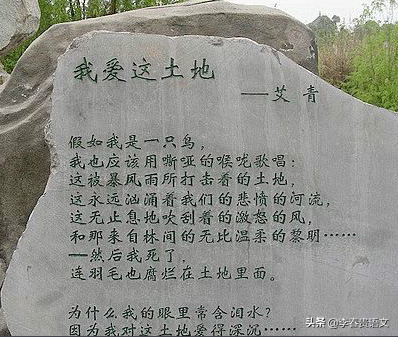 我爱这土地
——艾青
假如我是一只鸟，
我也应该用嘶哑的喉咙歌唱：
这被暴风雨所打击着的土地，
这永远汹涌着我们的悲愤的河流，
这无止息地吹刮着的激怒的风，
和那来自林间的无比温柔的黎明……
——然后我死了，
连羽毛也腐烂在土地里面。
为什么我的眼里常含泪水？
因为我对这土地爱得深沉……
头条@李春贵语文